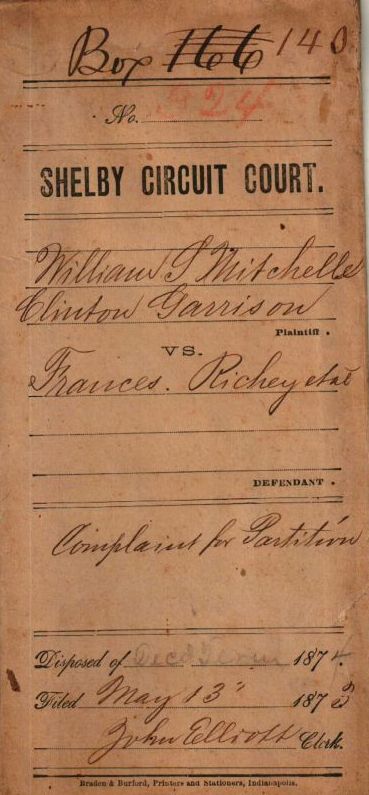 Box 166 140
No. 524
SHELBY CIRCUIT COURT.
William S Mitchelle
Clinton Garrison
Plaintiff.
VS.
Frances. Richey et al
DEFENDANT.
Complaint for Partition
Disposed of Term 1874.
Filed May 13" 1873
John Elliott Clerk.
Braden & Burford, Printers and Stationers, Indianapolis.